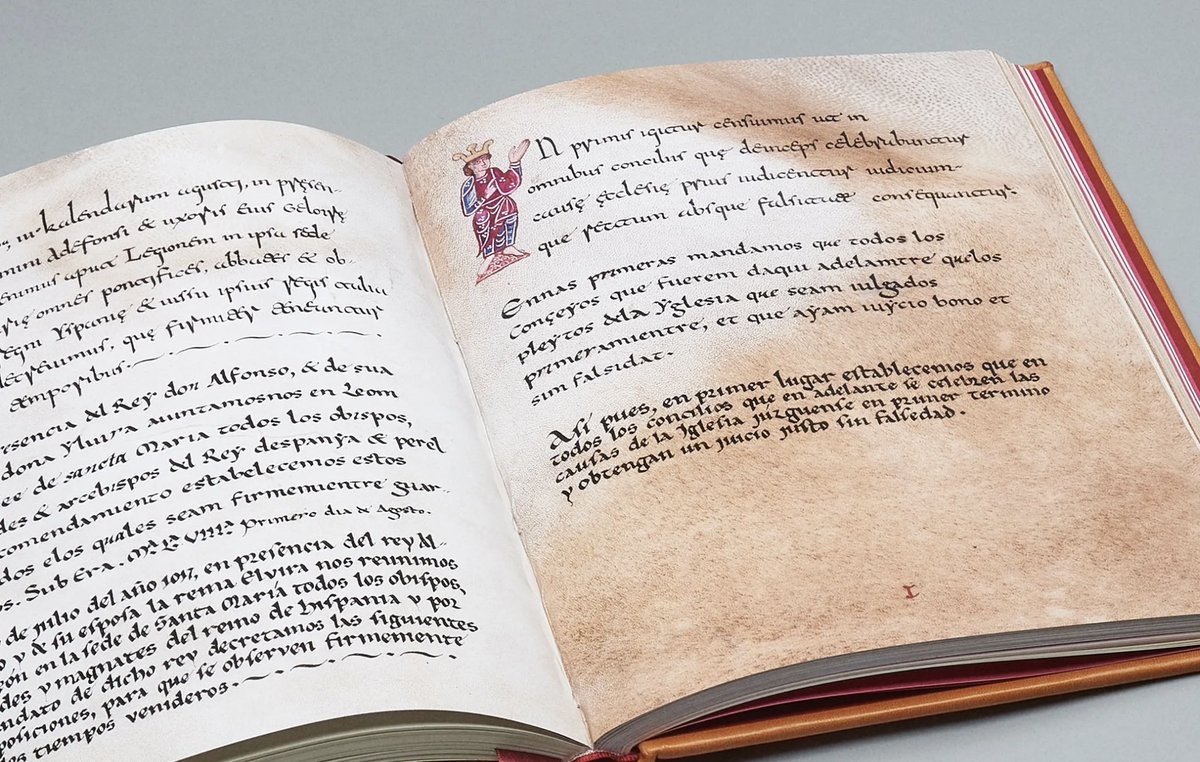 kalendarum agusti, in presen-
Adefonsi & uxoris eius Geloire
apud Legionem in ipsa sede
omnes pontifices, abbates & ob-
Yspanie & iussu ipsius regis talia
que firmiter teneantur
temporibus.
presencia del Rey don Alfonso, & de sua
dona ylvira aiuntamosnos en Leom
see de sancta Maria todos los obispos,
& arcebispos del Rey despanya & perel
comendamiento estabelecemos estos
elos quales seam firmemientre guar-
Sub Era. Mª Lª VIIIª Primero dia de Agosto.
de julio del año 1017, en presencia del rey Al-
y de su esposa la reina Elvira nos reunimos
en la sede de Santa María todos los obispos,
y magnates del reino de Hispania y por
de dicho rey decretamos las siguientes
para que se observen firmemente
tiempos venideros.
N primis igitur censuimus ut in
omnibus concilius que deinceps celebrabuntur
cause eclesie prius iudicentur iudicium-
que rectum absque falsitate consequantur.
Ennas primeras mandamos que todos los
Conçeyos que fuerem daqui adelamtre quelos
pleytos dela yglesia que seam iulgados
primeramientre, et que ayam iuycio bono et
sim falsidat.
Así pues, en primer lugar establecemos que en
todos los concilios que en adelante se celebren las
causas de la Iglesia juzguense en primer termino
y obtengan un juicio justo sin falsedad.
I